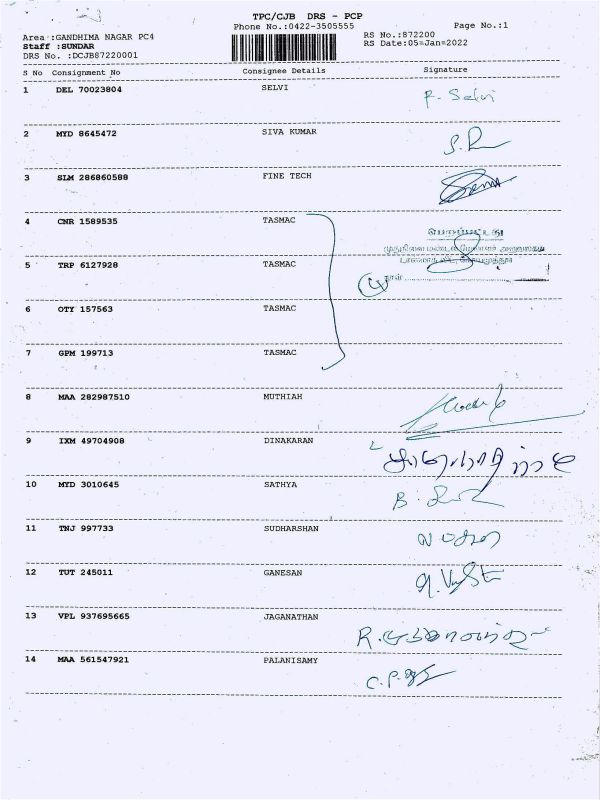 TPC/CJB DRS - PCP
Phone No.:0422-3505555
Page No.:1
Area :GANDHIMA NAGAR PC4
RS No.:872200
Staff :SUNDAR
RS Date:05=Jan=2022
DRS No. :DCJB87220001
S No Consignment No Consignee Details Signature
1 DEL 70023804 SELVI R. Selvi
2 MYD 8645472 SIVA KUMAR
3 SLM 286860588 FINE TECH
4 CNR 1589535 TASMAC
5 TRP 6127928 TASMAC
நாள்
6 OTY 157563 TASMAC
7 GPM 199713 TASMAC
8 MAA 282987510 MUTHIAH
9 IXM 49704908 DINAKARAN
10 MYD 3010645 SATHYA
11 TNJ 997733 SUDHARSHAN
12 TUT 245011 GANESAN
13 VPL 937695665 JAGANATHAN
14 MAA 561547921 PALANISAMY